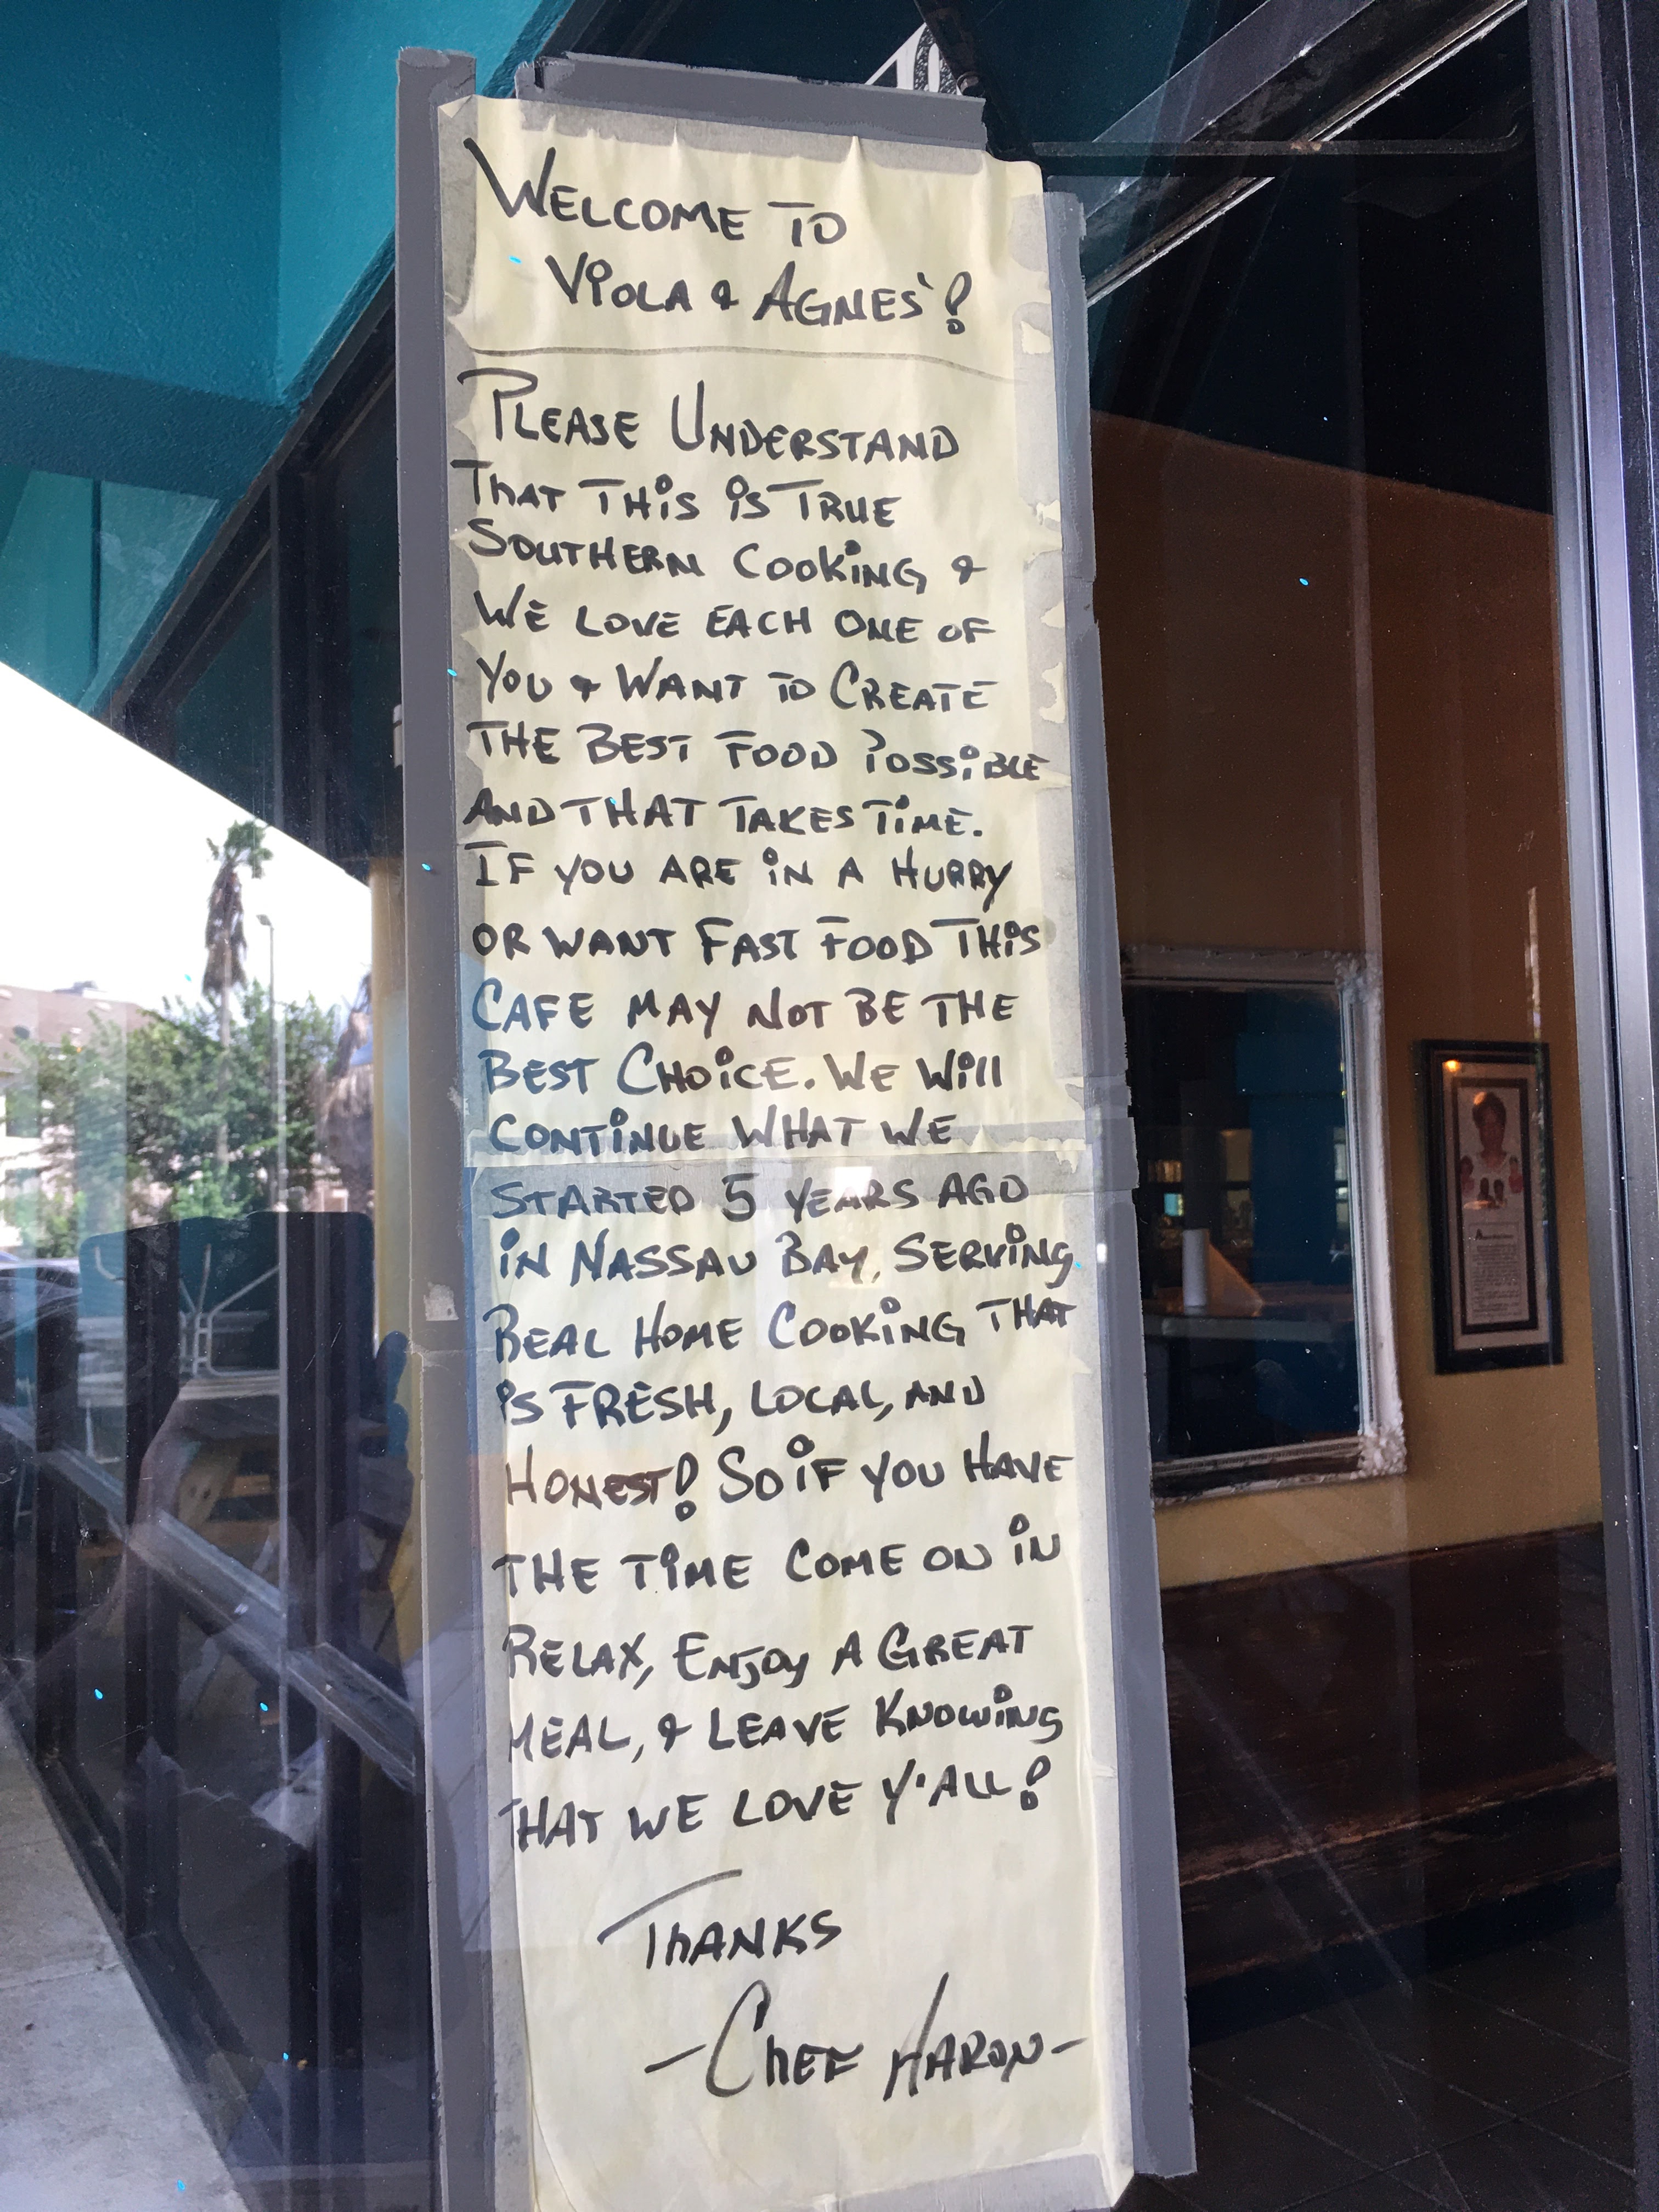 WELCOME TO
VIOLA & AGNES'!
PLEASE UNDERSTAND
THAT THIS IS TRUE
SOUTHERN COOKING &
WE LOVE EACH ONE OF
YOU & WANT TO CREATE
THE BEST FOOD POSSIBLE
AND THAT TAKES TIME.
IF YOU ARE IN A HURRY
OR WANT FAST FOOD THIS
CAFE MAY NOT BE THE
BEST CHOICE. WE WILL
CONTINUE WHAT WE
STARTED 5 YEARS AGO
IN NASSAU BAY, SERVING
REAL HOME COOKING THAT
IS FRESH, LOCAL, AND
HONEST! SO IF YOU HAVE
THE TIME COME ON IN
RELAX, ENJOY A GREAT
MEAL, & LEAVE KNOWING
THAT WE LOVE Y'ALL!
THANKS
- CHEF AARON -